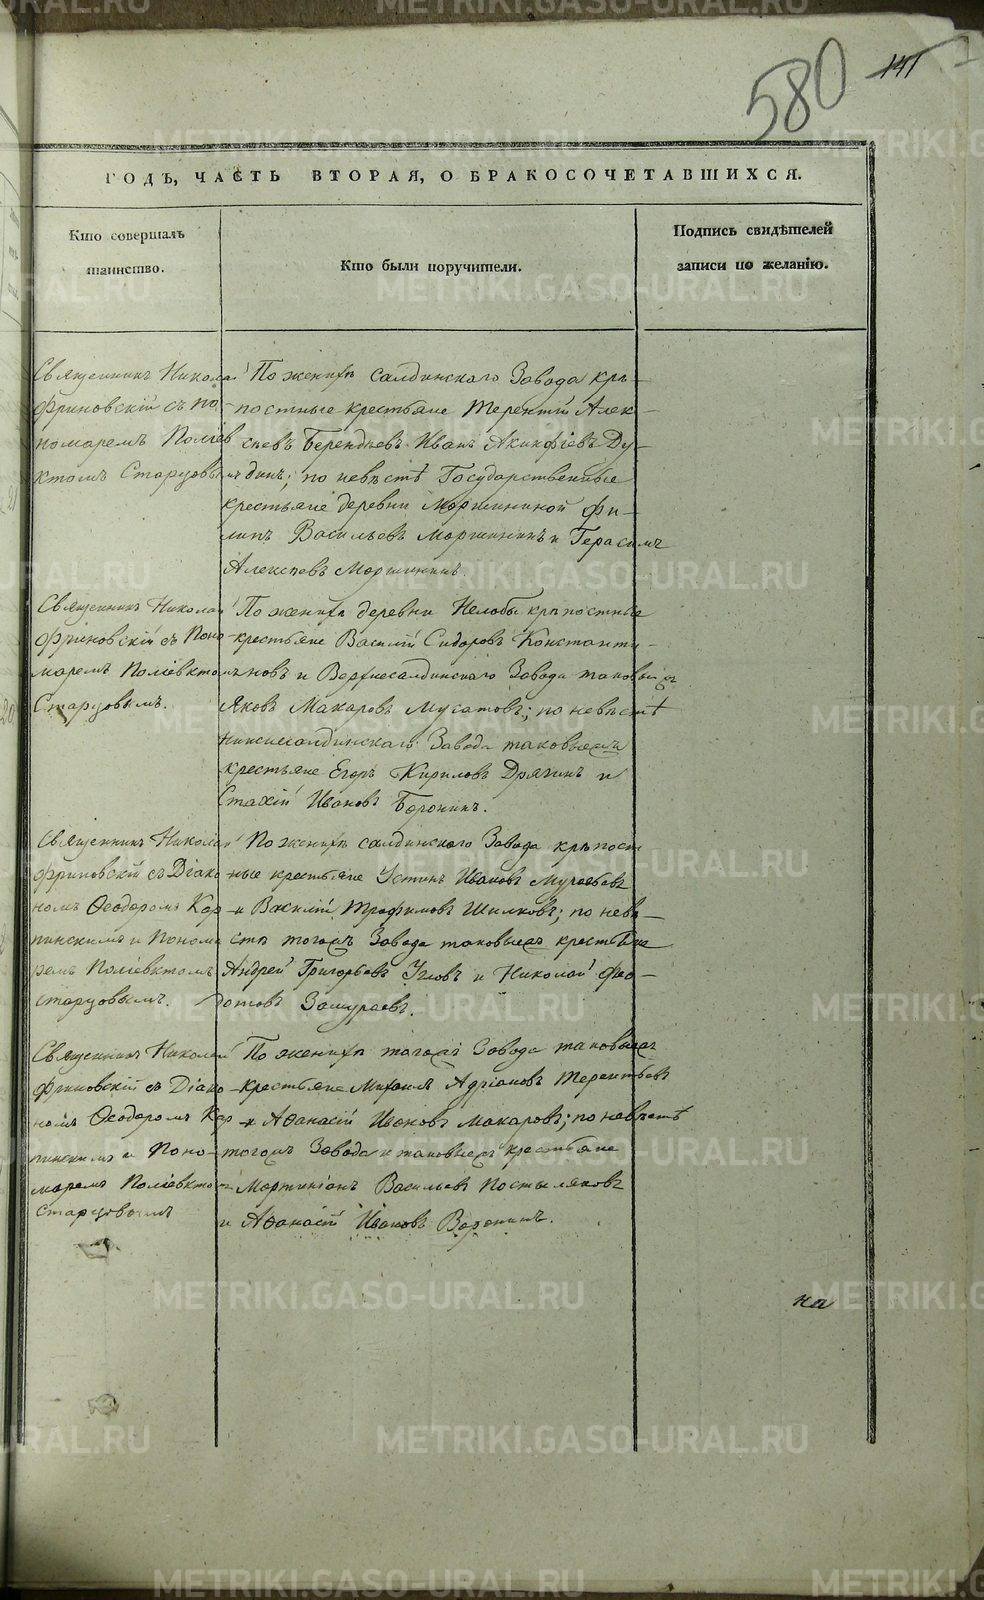 580
141
ГОДЪ, ЧАСТЬ ВТОРАЯ, О БРАКОСОЧЕТАВШИХСЯ.
Кто совершалъ
таинство.
Кто были поручители.
Подпись свидѣтелей
записи по желанію.
Священникъ Николай
Фриновскій съ по-
номаремъ Поліев
ктомъ Старцовымъ
По женихѣ салдинскаго Завода крѣ-
постные крестьяне Терентій Алек-
сѣевъ Берендѣевъ Иванъ Акинфіевъ Ду-
динъ; по невѣстѣ Государственные
крестьяне деревни Моршининой Фи-
липъ Васильевъ Моршининъ и Герасимъ
Алексѣевъ Моршининъ.
Священникъ Николай
Фриновскій съ Поно-
маремъ Поліевктомъ
Старцовымъ.
По женихѣ деревни Нелобы крѣпостные
крестьяне Василій Сидоровъ Константи-
новъ и Верхнесалдинскаго Завода таковыхъ
Яковъ Макаровъ Мусатовъ; по невѣстѣ
нижнесалдинскаго Завода таковыежъ
крестьяне Егоръ Кириловъ Дрягинъ и
Стахій Ивановъ Воронинъ.
Священникъ Николай
Фриновскій съ Діако
номъ Ѳеодоромъ Кар
пинскимъ и Понома
ремъ Поліевктомъ
старцовымъ.
По женихѣ салдинскаго Завода крѣпост
ные крестьяне Устинъ Ивановъ
и Василій Трофимовъ Шилковъ; по невѣ-
стѣ тогожъ Завода таковыежъ крестьяне
Андрей Григорьевъ Угловъ и Николай Фео-
дотовъ
Священникъ Николай
Фриновскій съ Діако
номъ Ѳеодоромъ Кар
пинскимъ и Поно-
маремъ Поліевктомъ
Старцовымъ
По женихѣ тогожъ Завода таковыежъ
крестьяне Михаилъ Адріановъ Терентьевъ
и Аѳанасій Ивановъ Макаровъ; по невѣстѣ
тогожъ Завода и таковыежъ крестьяне
Мартиніанъ Васильевъ Постыляковъ
и Аѳанасій Ивановъ Воронинъ.
на
METRIKI.GASO-URAL.RU